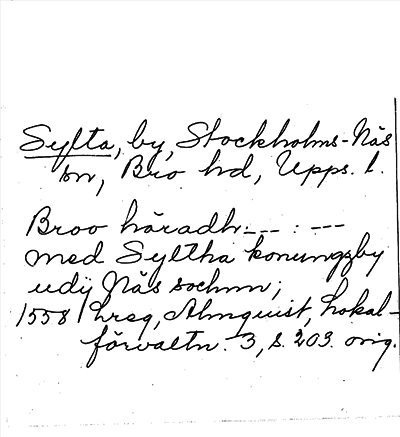 Sylta, by, Stockholms-Näs
sn, Bro hd, Upps. l.
Broo häradh --- : ---
med Syltha konungzby
udij Näs sochnn;
1558 hrsg, Almquist, Lokal-
förvaltn. 3, s. 203. orig.